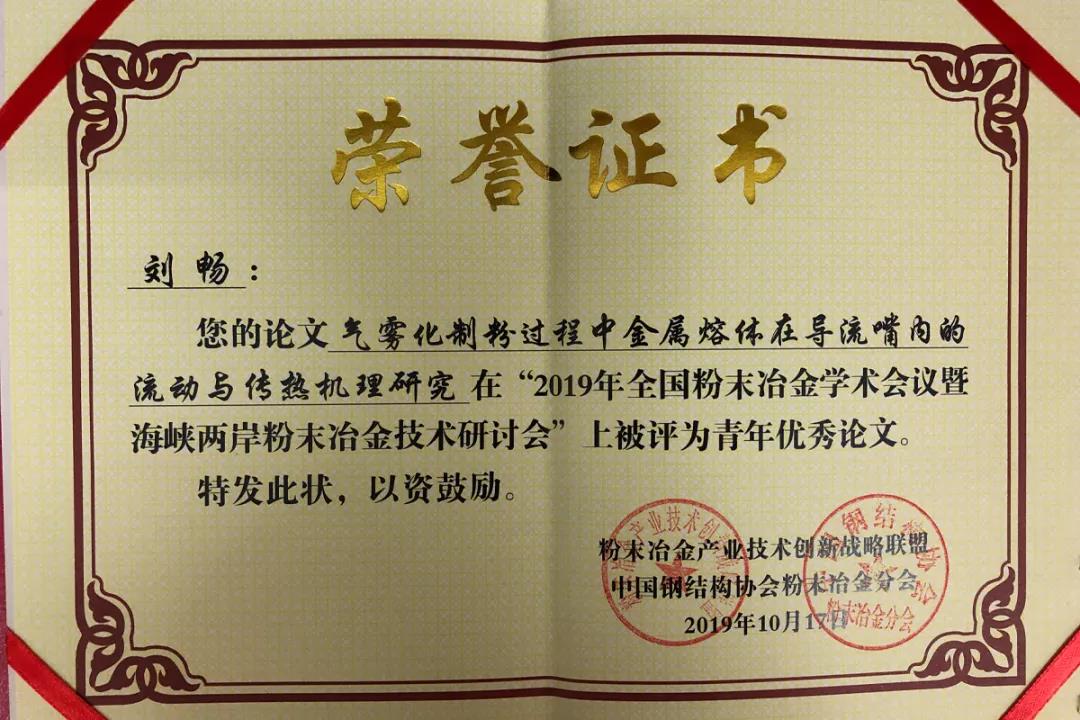 荣誉证书
刘畅：
您的论文气雾化制粉过程中金属熔体在导流嘴内的
流动与传热机理研究在“2019年全国粉末冶金学术会议暨
海峡两岸粉末冶金技术研讨会”上被评为青年优秀论文。
特发此状，以资鼓励。
粉末冶金产业技术创新战略联盟
中国钢结构协会粉末冶金分会
2019年10月17日
粉末冶金分会